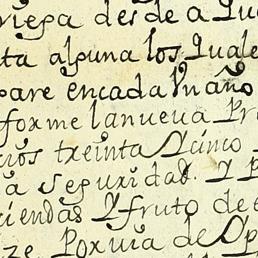 riega desde a Qu
ta alguna los Quale
pare encada Un año
forme lanueva Pr
cios treinta Y cinco
a seguridad. Y P
ciendas Y fruto de
ze. Por via de Op